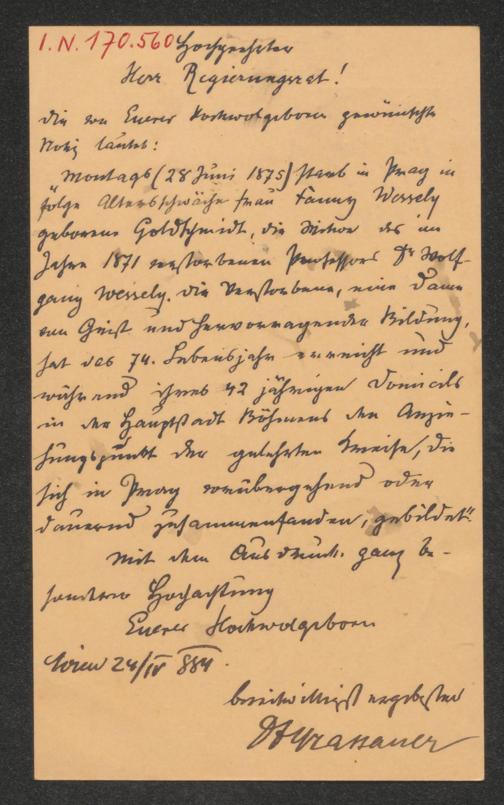 I.N. 170.560 Hochgeehrter
Herr Regierungsrat!
Die von Euerer Hochwolgeboren gewünschte
Notiz lautet:
Montags (28 Juni 1875) starb in Prag in
folge Altersschwäche Frau Fanny Wessely
geborene Goldschmidt, die Witwe des im
Jahre 1871 verstorbenen Professors Dr Wolf-
gang Wessely. Die Verstorbene, eine Dame
von Geist und hervorragender Bildung,
hat das 74. Lebensjahr erreicht und
während ihres 42 jährigen Domicils
in der Hauptstadt Böhmens den Anzie-
hungspunkt der gelehrten Kreise, die
sich in Prag vorübergehend oder
dauernd zusammenfanden, gebildet".
Mit dem Ausdruck ganz be-
sonderer Hochachtung
Euerer Hochwolgeboren
Wien 24/IV 884.
bereitwilligst ergebenster
Dr Grassauer